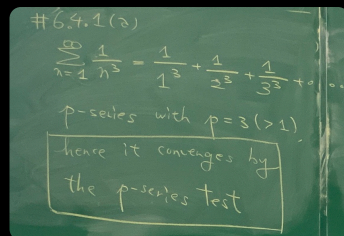 #6.4.1(a)
∞ ∑ n=1 1/n³ = 1/1³ + 1/2³ + 1/3³ + ...
p-series with p=3(>1)
hence it converges by
the p-series test